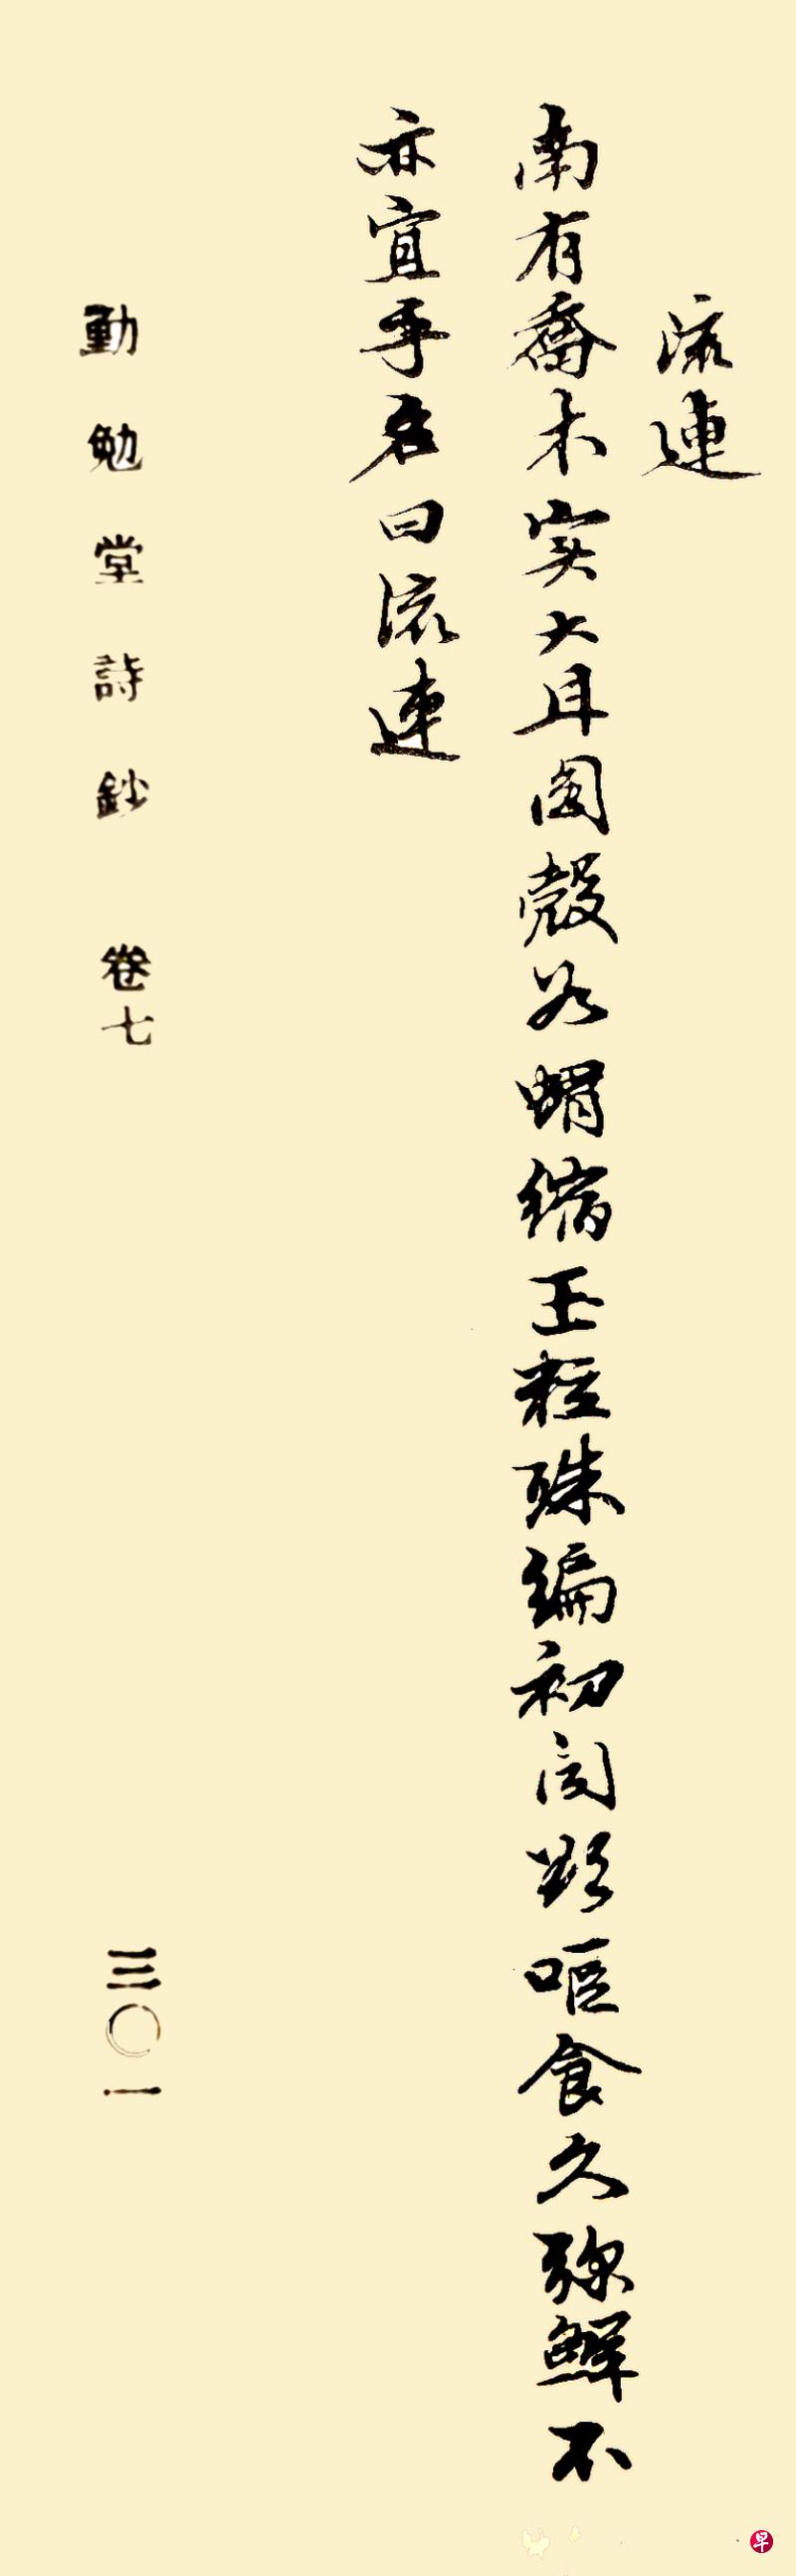 流連
南有喬木实大且圓殼如蝟縮玉粒珠編初聞欲嘔食久弥鮮不
亦宜乎名曰流連
勤勉堂詩鈔 卷七
三〇一
早